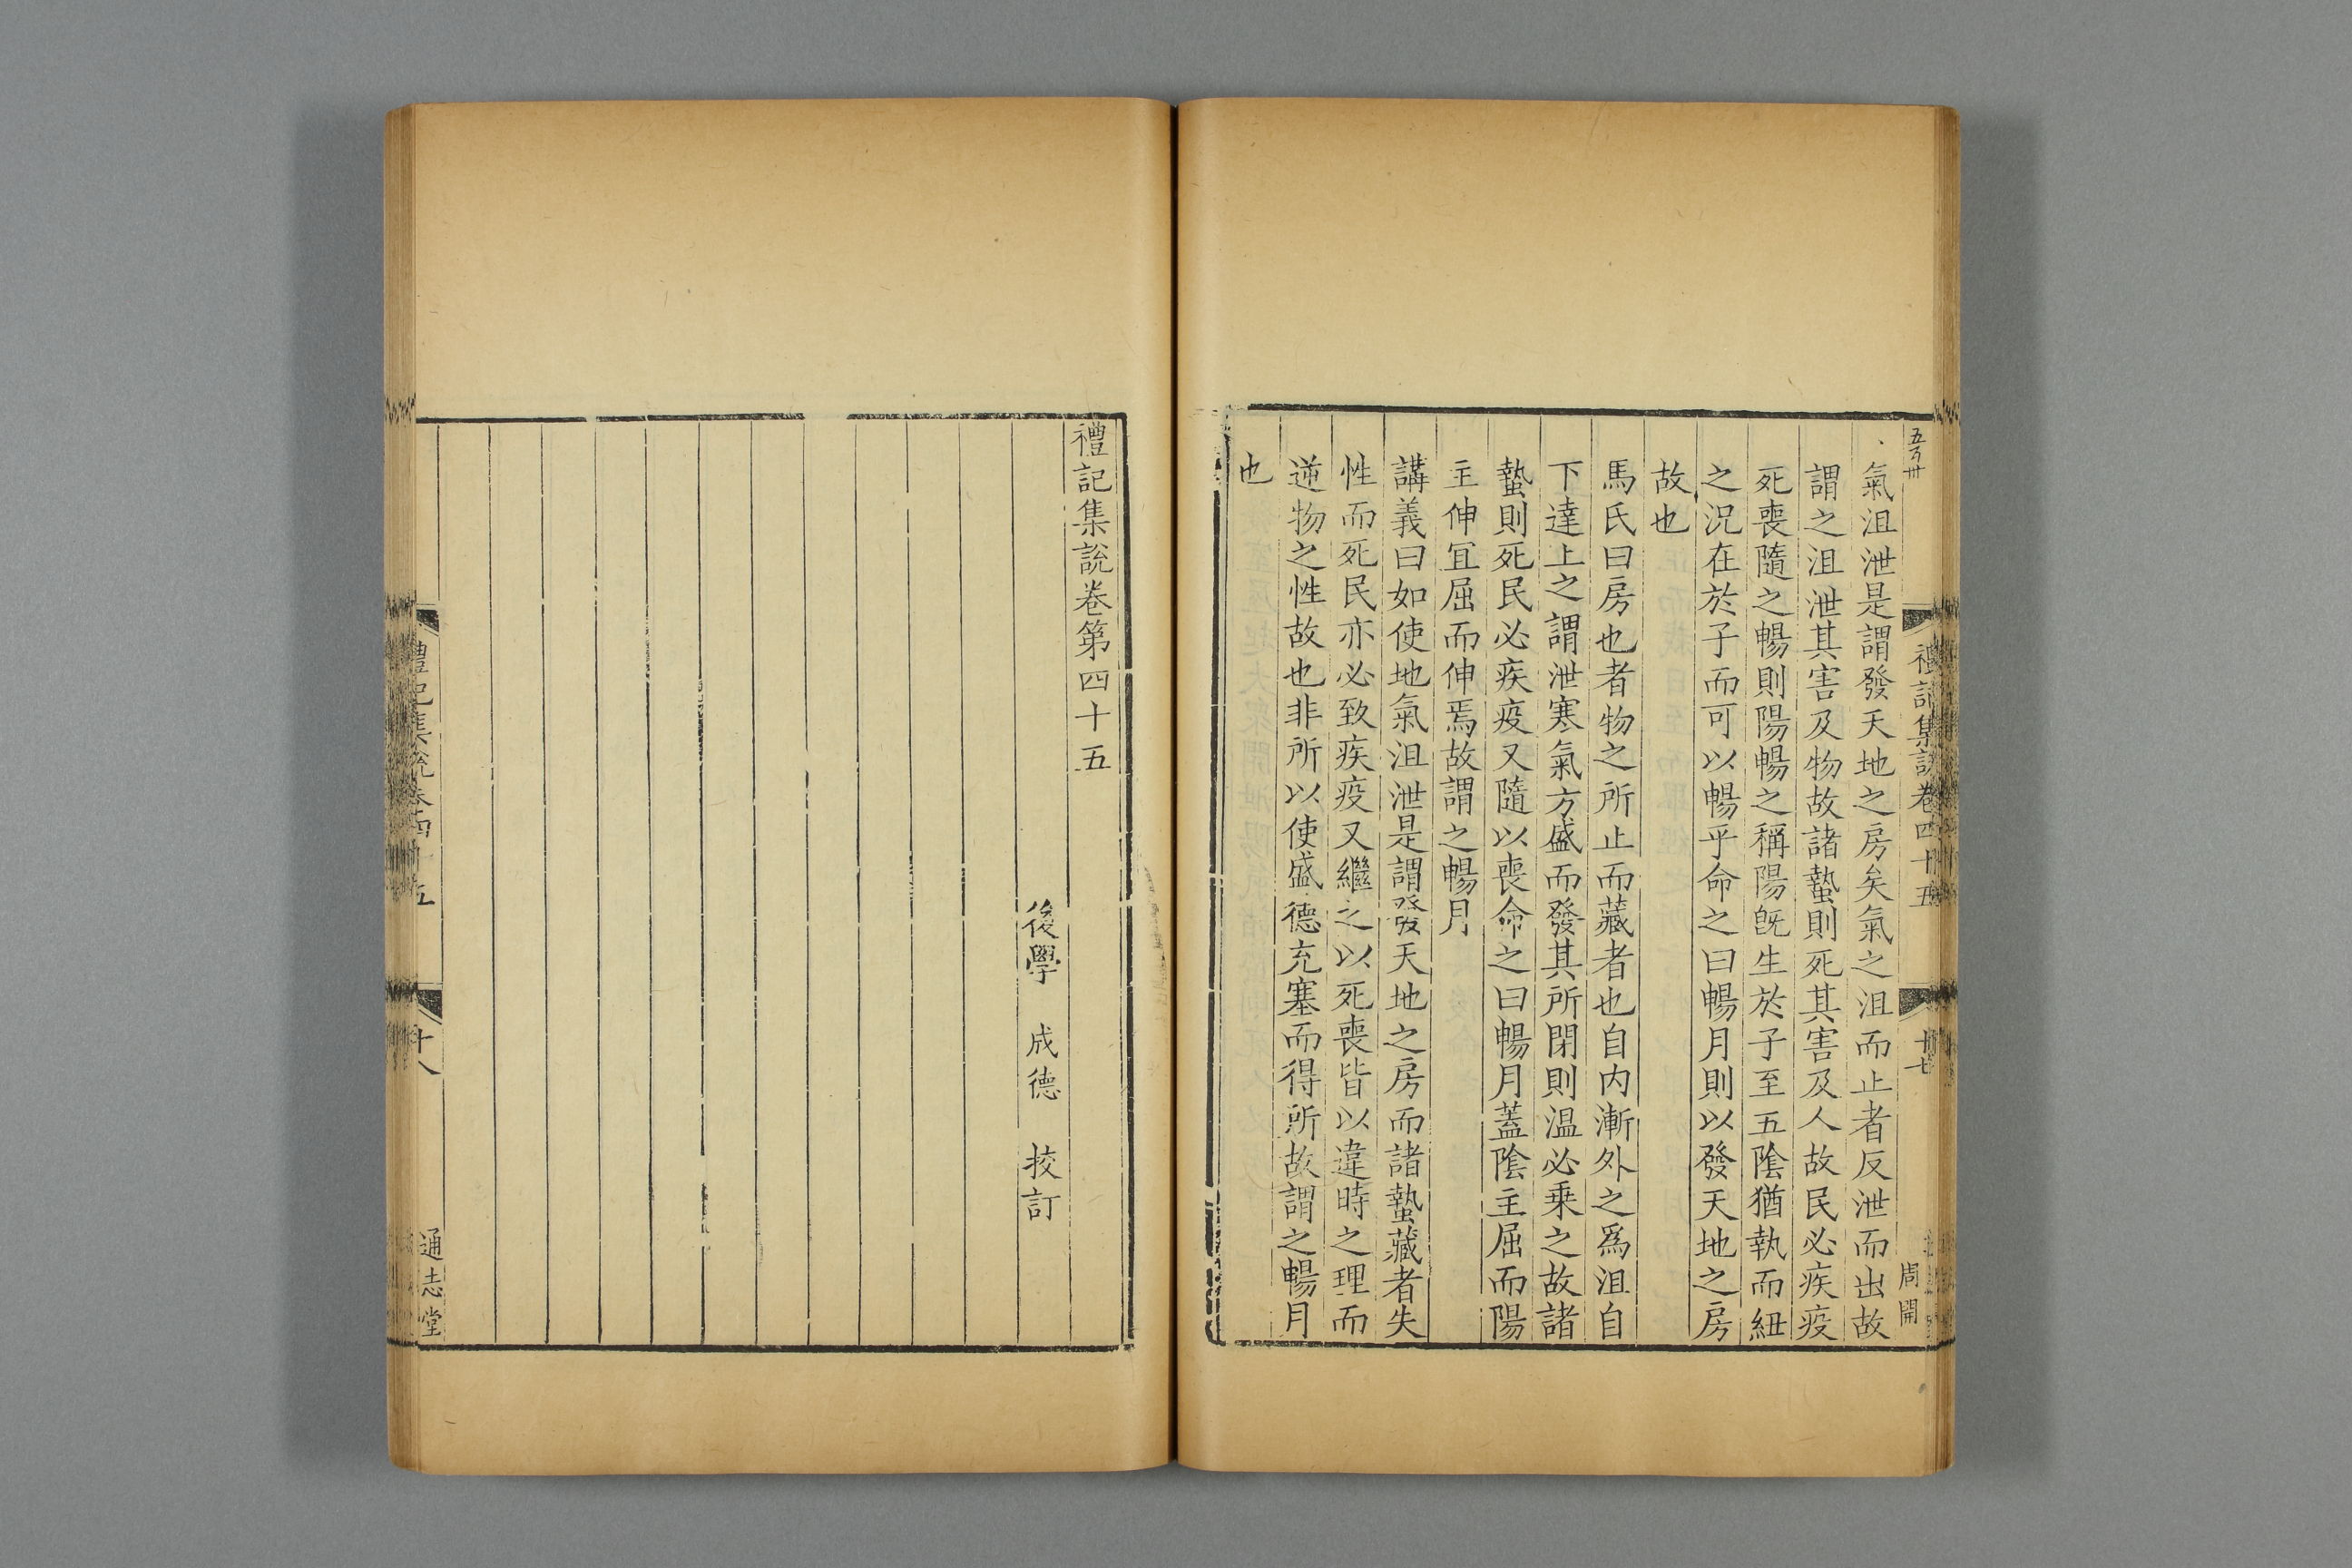 禮記集說卷四十五
十七
周開
氣沮泄是謂發天地之房矣氣之沮而止者反泄而出故
謂之沮泄其害及物故諸蟄則死其害及人故民必疾疫
死喪隨之暢則陽暢之稱陽旣生於子至五陰猶執而紐
之況在於子而可以暢乎命之曰暢月則以發天地之房
故也
馬氏曰房也者物之所止而藏者也自內漸外之爲沮自
下達上之謂泄寒氣方盛而發其所閉則温必乗之故諸
蟄則死民必疾疫又隨以喪命之曰暢月蓋陰主屈而陽
主伸冝屈而伸焉故謂之暢月
講義曰如使地氣沮泄是謂發天地之房而諸蟄藏者失
性而死民亦必致疾疫又繼之以死喪皆以違時之理而
逆物之性故也非所以使盛德充塞而得所故謂之暢月
也
禮記集說卷第四十五
後學 成德 挍訂
禮記集說卷四十五
十八
通志堂